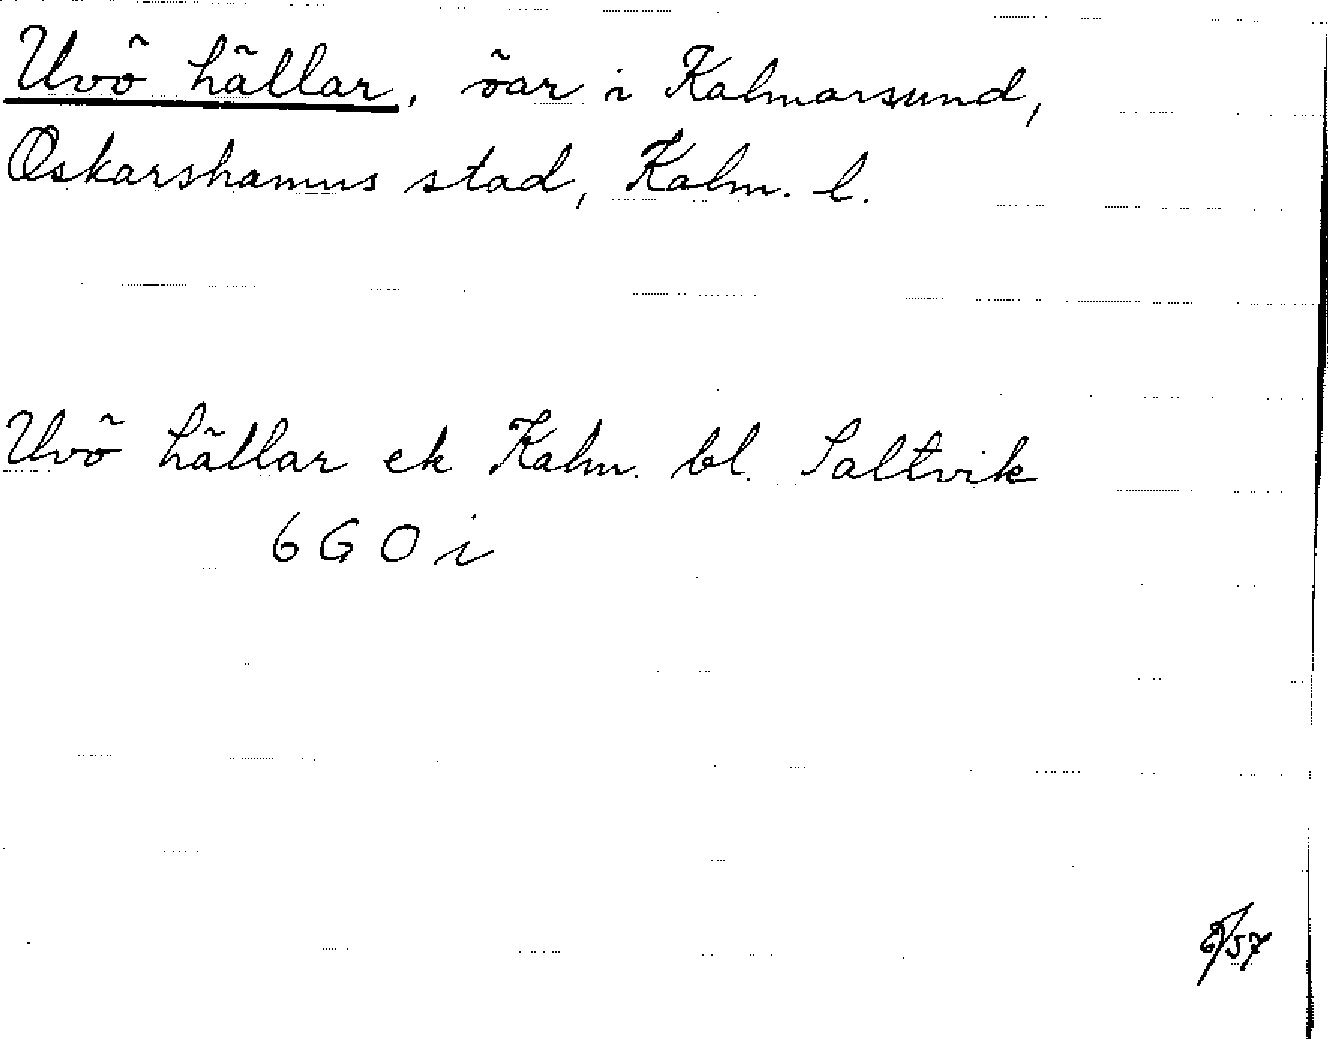 Uvö hällar, öar i Kalmarsund,
Oskarshamns stad, Kalm. l.
Uvö hällar ek Kalm. bl. Saltvik
6 G O i